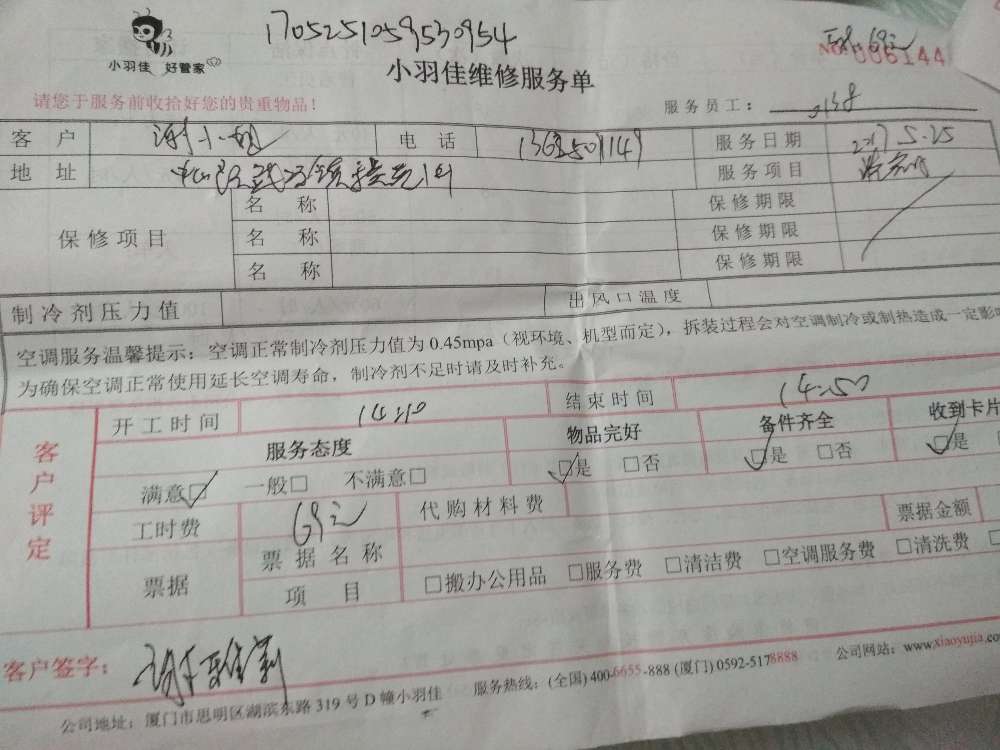 1705251059530954
小羽佳 好管家
小羽佳维修服务单
69元
NO 006144
请您于服务前收拾好您的贵重物品！
服务员工：
客户 谢小姐 电话 服务日期 2017.5.25
地址 服务项目
保修项目 名称 保修期限
名称 保修期限
名称 保修期限
制冷剂压力值 出风口温度
空调服务温馨提示：空调正常制冷剂压力值为 0.45mpa（视环境、机型而定），拆装过程会对空调制冷或制热造成一定影响
为确保空调正常使用延长空调寿命，制冷剂不足时请及时补充。
客户评定
开工时间 14:10 结束时间 14:50
服务态度 物品完好 备件齐全 收到卡片
满意☑ 一般□ 不满意□ ☑是 □否 ☑是 □否 ☑是
工时费 69元 代购材料费 票据金额
票据 票据名称
项目 □搬办公用品 □服务费 □清洁费 □空调服务费 □清洗费
客户签字：
公司地址：厦门市思明区湖滨东路 319 号 D 幢小羽佳 服务热线：(全国) 400-6655-888 (厦门) 0592-5178888 公司网站：www.xiaoyujia.com